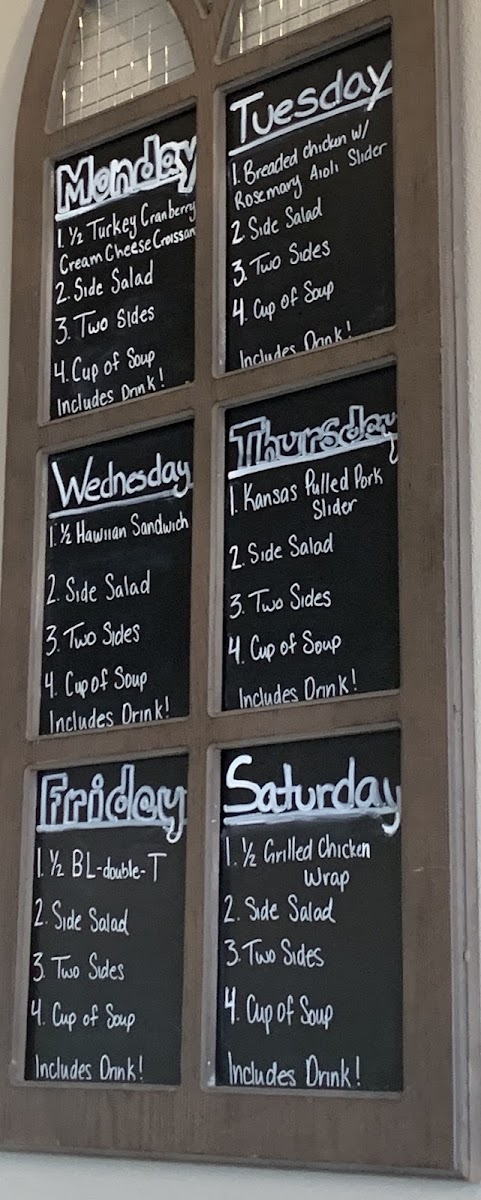 Monday
1. ½ Turkey Cranberry
Cream Cheese Croissan
2. Side Salad
3. Two Sides
4. Cup of Soup
Includes Drink!
Tuesday
1. Breaded chicken w/
Rosemary Aioli Slider
2. Side Salad
3. Two Sides
4. Cup of Soup
Includes Drink!
Wednesday
1. ½ Hawiian Sandwich
2. Side Salad
3. Two Sides
4. Cup of Soup
Includes Drink!
Thursday
1. Kansas Pulled Pork
Slider
2. Side Salad
3. Two Sides
4. Cup of Soup
Includes Drink!
Friday
1. ½ BL-double-T
2. Side Salad
3. Two Sides
4. Cup of Soup
Includes Drink!
Saturday
1. ½ Grilled Chicken
Wrap
2. Side Salad
3. Two Sides
4. Cup of Soup
Includes Drink!